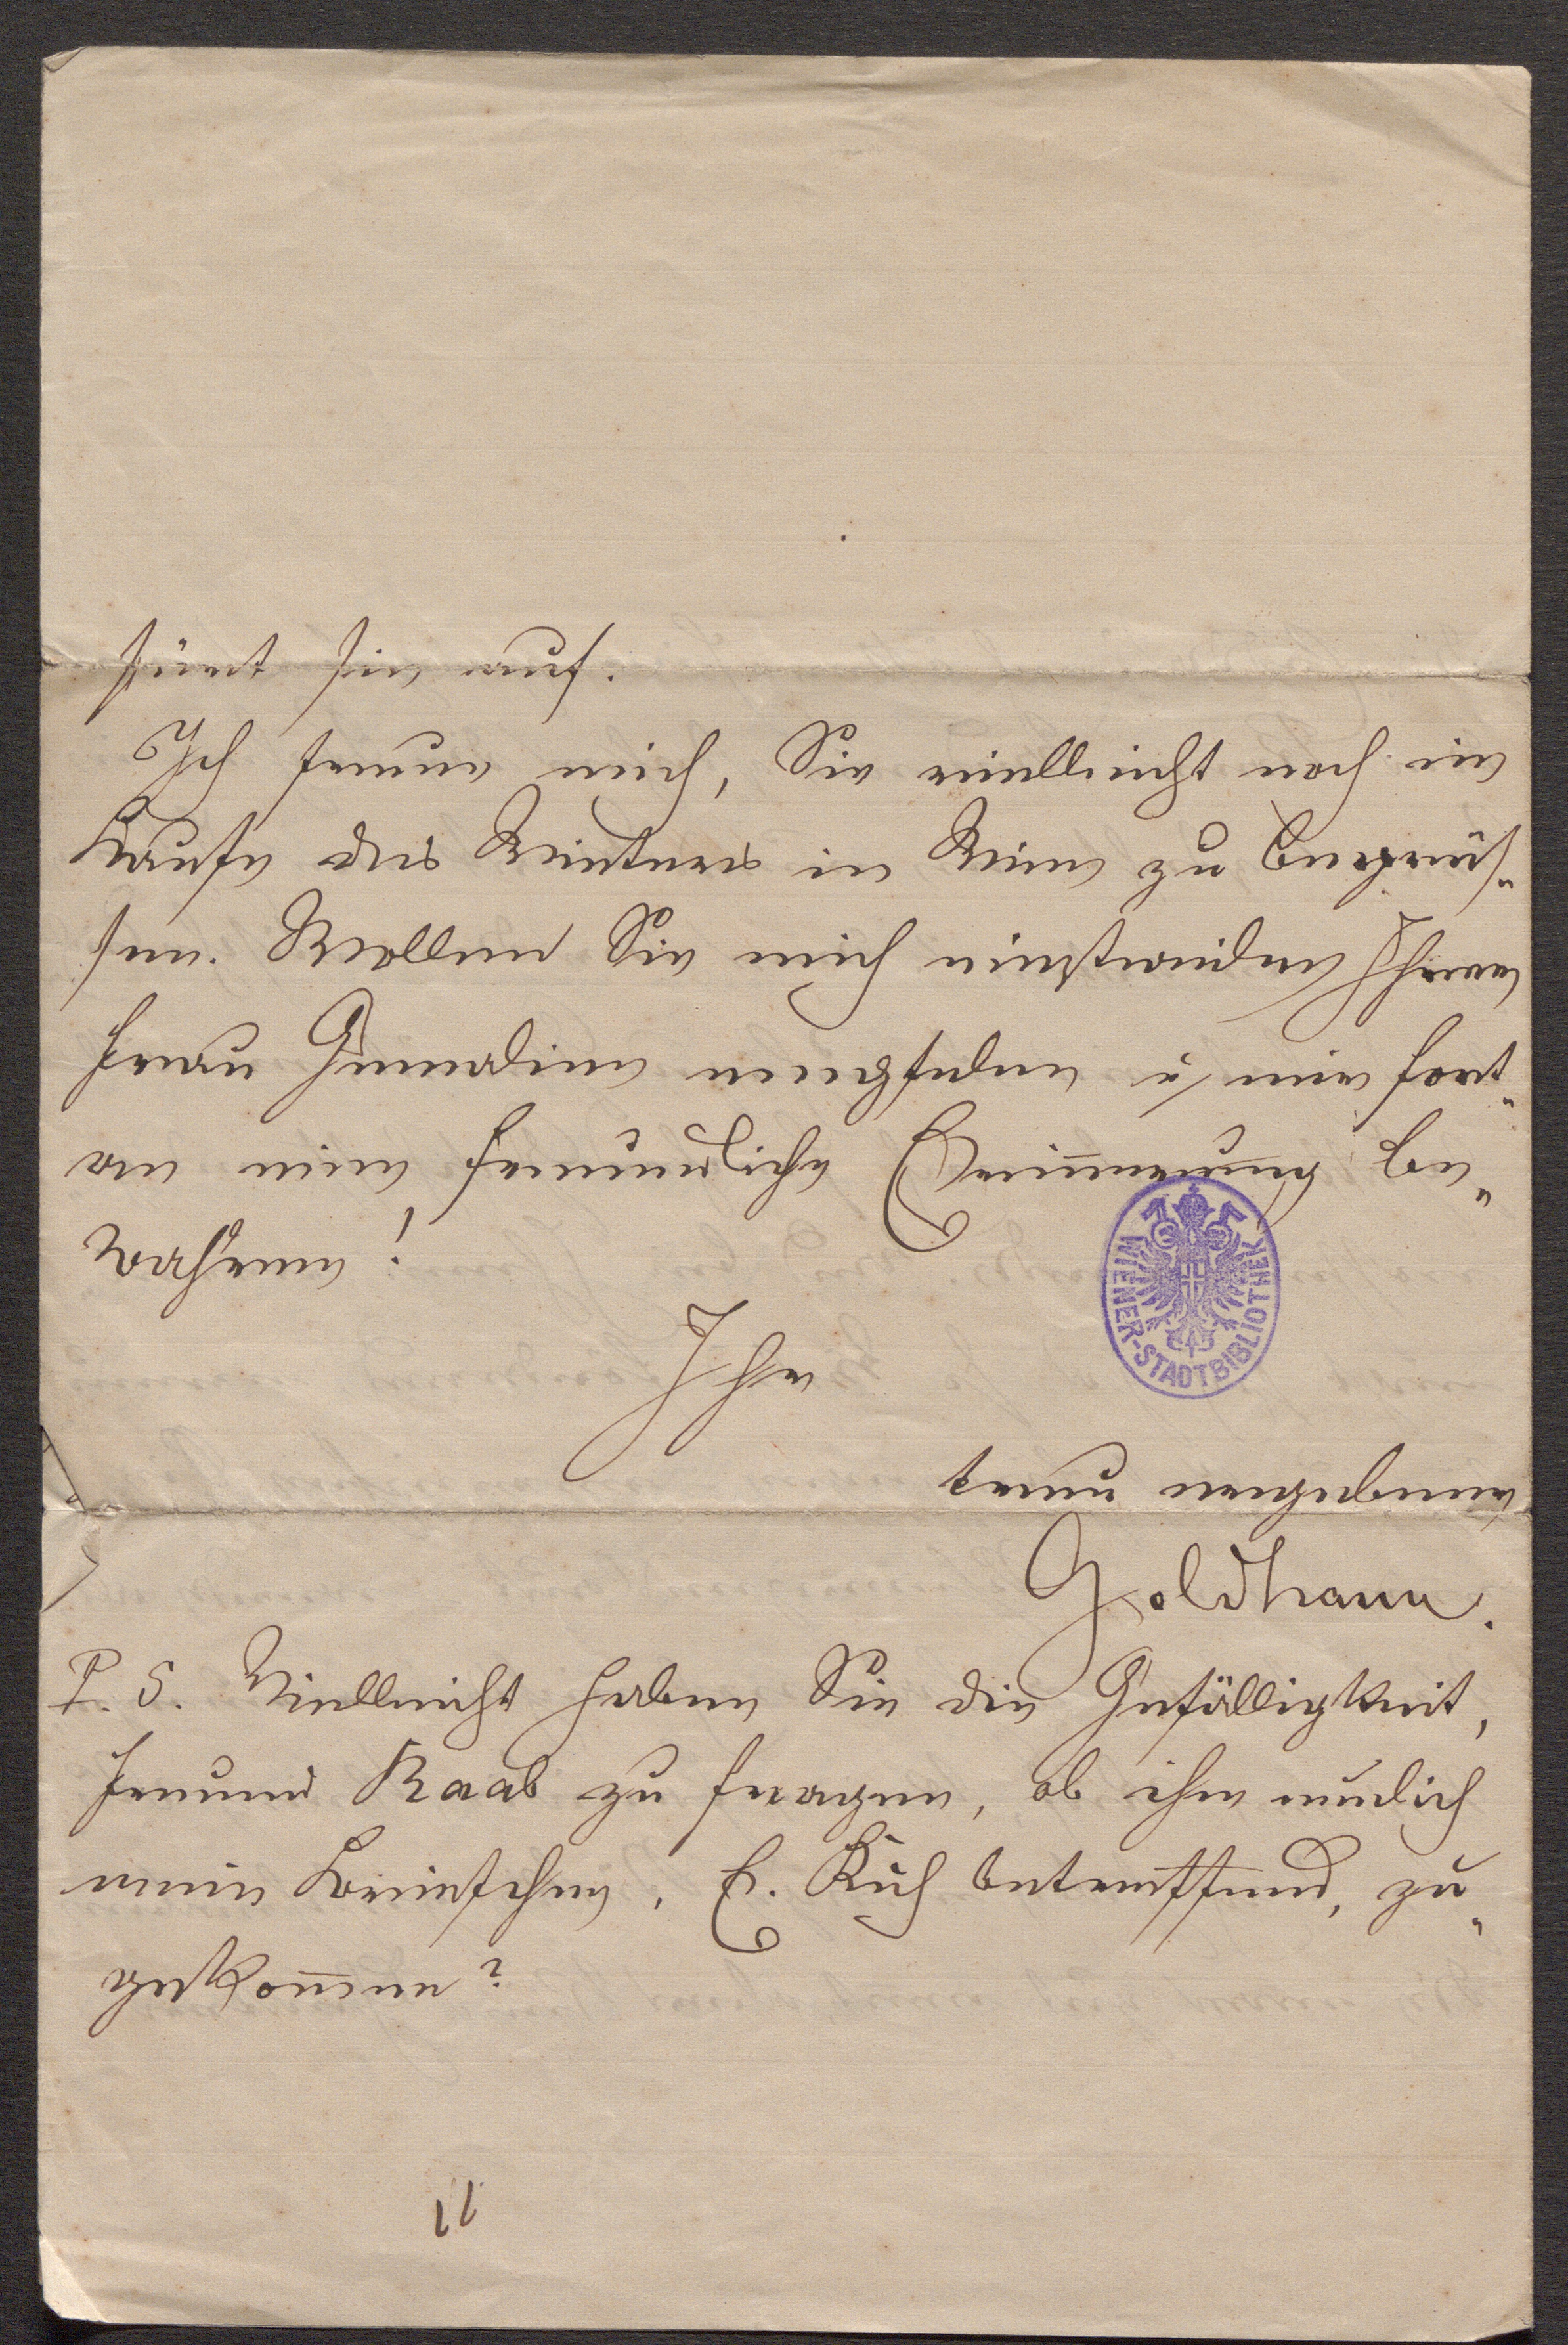 hört sie auf.
Ich freue mich, Sie vielleicht noch im
Laufe des Winters in Wien zu begrüs„
sen. Wollen Sie mich einstweilen Ihrer
Frau Gemalin empfelen u mir fort„
an eine freundliche Erinnerung be„
wahren!
Ihr
treu ergebener
Goldhann.
P. S. Vielleicht haben Sie die Gefälligkeit,
Freund Raab zu fragen, ob ihm neulich
mein Briefchen, E. Kuh betreffend, zu„
gekommen?
WIENER-STADTBIBLIOTHEK